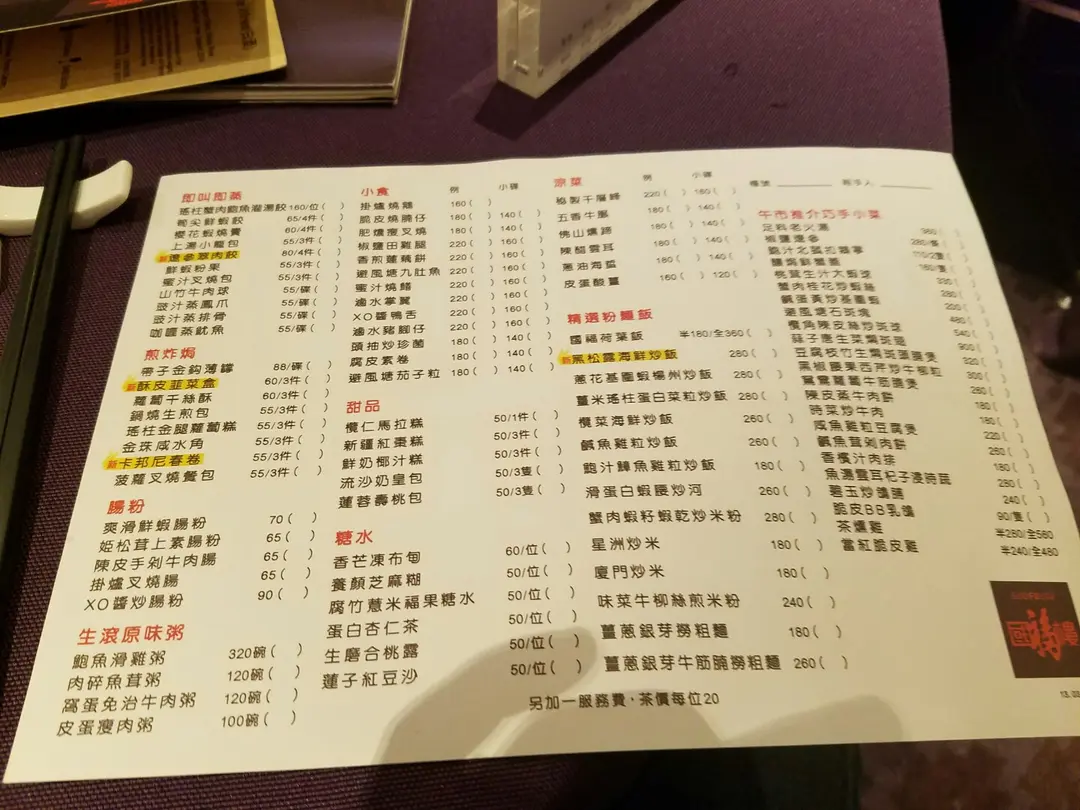 即叫即蒸
瑤柱蟹肉鮑魚灌湯餃 160/位( )
筍尖鮮蝦餃 65/4件( )
櫻花蝦燒賣 60/4件( )
上湯小龍包 55/3件( )
新遼參翠肉餃 80/4件( )
鮮蝦粉果 55/3件( )
蜜汁叉燒包 55/3件( )
山竹牛肉球 55/碟( )
豉汁蒸鳳爪 55/碟( )
豉汁蒸排骨 55/碟( )
咖喱蒸魷魚 55/碟( )
煎炸焗
帶子金鈎薄罉 88/碟( )
新酥皮韮菜盒 60/3件( )
蘿蔔千絲酥 60/3件( )
鍋燒生煎包 55/3件( )
瑤柱金腿蘿蔔糕 55/3件( )
金珠咸水角 55/3件( )
新卡邦尼春卷 55/3件( )
菠蘿叉燒餐包 55/3件( )
腸粉
爽滑鮮蝦腸粉 70( )
姫松茸上素腸粉 65( )
陳皮手剁牛肉腸 65( )
掛爐叉燒腸 65( )
XO醬炒腸粉 90( )
生滾原味粥
鮑魚滑雞粥 320碗( )
肉碎魚茸粥 120碗( )
窩蛋免治牛肉粥 120碗( )
皮蛋瘦肉粥 100碗( )
小食 例 小碟
掛爐燒鵝 160( )
脆皮燒腩仔 180( ) 140( )
肥燶瘦叉燒 180( ) 140( )
椒鹽田雞腿 220( ) 160( )
香煎蓮藕餅 220( ) 160( )
避風塘九肚魚 220( ) 160( )
蜜汁燒鱔 220( ) 160( )
滷水掌翼 220( ) 160( )
XO醬鴨舌 220( ) 160( )
滷水豬腳仔 220( ) 160( )
頭抽炒珍菌 180( ) 140( )
腐皮素卷 180( ) 140( )
避風塘茄子粒 180( ) 140( )
甜品
欖仁馬拉糕 50/1件( )
新疆紅棗糕 50/3件( )
鮮奶椰汁糕 50/3件( )
流沙奶皇包 50/3隻( )
蓮蓉壽桃包 50/3隻( )
糖水
香芒凍布甸 60/位( )
養顏芝麻糊 50/位( )
腐竹薏米福果糖水 50/位( )
蛋白杏仁茶 50/位( )
生磨合桃露 50/位( )
蓮子紅豆沙 50/位( )
涼菜 例 小碟
秘製千層峰 220( ) 160( )
五香牛𦟌 180( ) 140( )
佛山燻蹄 180( ) 140( )
陳醋雲耳 180( ) 140( )
葱油海蜇 180( ) 140( )
皮蛋酸薑 160( ) 120( )
精選粉麵飯
國福荷葉飯 半180/全360( )
新黑松露海鮮炒飯 280( )
葱花基圍蝦楊州炒飯 280( )
薑米瑤柱蛋白菜粒炒飯 280( )
欖菜海鮮炒飯 260( )
鹹魚雞粒炒飯 260( )
鮑汁鱆魚雞粒炒飯 180( )
滑蛋白蝦腰炒河 260( )
蟹肉蝦籽蝦乾炒米粉 280( )
星洲炒米 180( )
廈門炒米 180( )
味菜牛柳絲煎米粉 240( )
薑葱銀芽撈粗麵 180( )
薑葱銀芽牛筋腩撈粗麵 260( )
檯號 經手人
午市推介巧手小菜
足料老火湯
椒鹽遼參
桃茸生汁大蝦球
蟹肉桂花炒蝦絲
鹹蛋黃炒基圍蝦
避風塘石斑塊
欖角陳皮絲炒斑球
蒜子唐生菜燜斑翅
豆腐枝竹生燜斑頭腩煲
黑椒腰果西芹炒牛柳粒
鴛鴦蘿蔔牛筋腩煲
陳皮蒸牛肉餅
時菜炒牛肉
咸魚雞粒豆腐煲
鹹魚茸剁肉餅
香檳汁肉排
魚湯雲耳杞子浸時蔬
碧玉炒鴿脯 240( )
脆皮BB乳鴿 90/隻( )
茶燻雞 半280/全560
當紅脆皮雞 半240/全480
另加一服務費，茶價每位20
國福樓